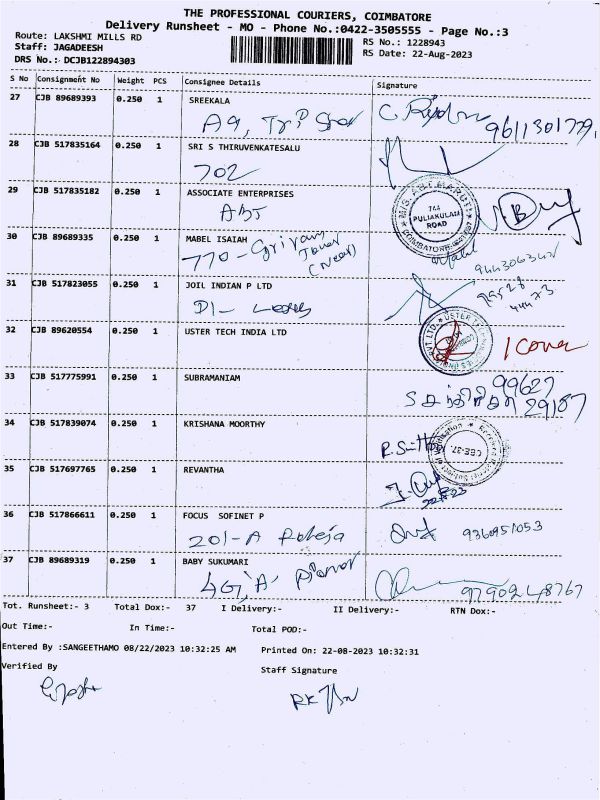 THE PROFESSIONAL COURIERS, COIMBATORE
Delivery Runsheet - MO - Phone No.:0422-3505555 - Page No.:3
Route: LAKSHMI MILLS RD
RS No.: 1228943
Staff: JAGADEESH
RS Date: 22-Aug-2023
DRS No.: DCJB122894303
S No Consignment No Weight PCS Consignee Details Signature
27 CJB 89689393 0.250 1 SREEKALA
A9,
28 CJB 517835164 0.250 1 SRI S THIRUVENKATESALU
702
29 CJB 517835182 0.250 1 ASSOCIATE ENTERPRISES
744
PULIAKULAM
ROAD
COIMBATORE
30 CJB 89689335 0.250 1 MABEL ISAIAH
770-
Tower
(Near)
31 CJB 517823055 0.250 1 JOIL INDIAN P LTD
32 CJB 89620554 0.250 1 USTER TECH INDIA LTD
1 Cover
33 CJB 517775991 0.250 1 SUBRAMANIAM
99627
29187
34 CJB 517839074 0.250 1 KRISHANA MOORTHY
CBE-37.
35 CJB 517697765 0.250 1 REVANTHA
36 CJB 517866611 0.250 1 FOCUS SOFINET P
201-A Raheja
37 CJB 89689319 0.250 1 BABY SUKUMARI
4G, 'A'
9790248767
Tot. Runsheet:- 3 Total Dox:- 37 I Delivery:- II Delivery:- RTN Dox:-
Out Time:- In Time:- Total POD:-
Entered By :SANGEETHAMO 08/22/2023 10:32:25 AM Printed On: 22-08-2023 10:32:31
Verified By Staff Signature